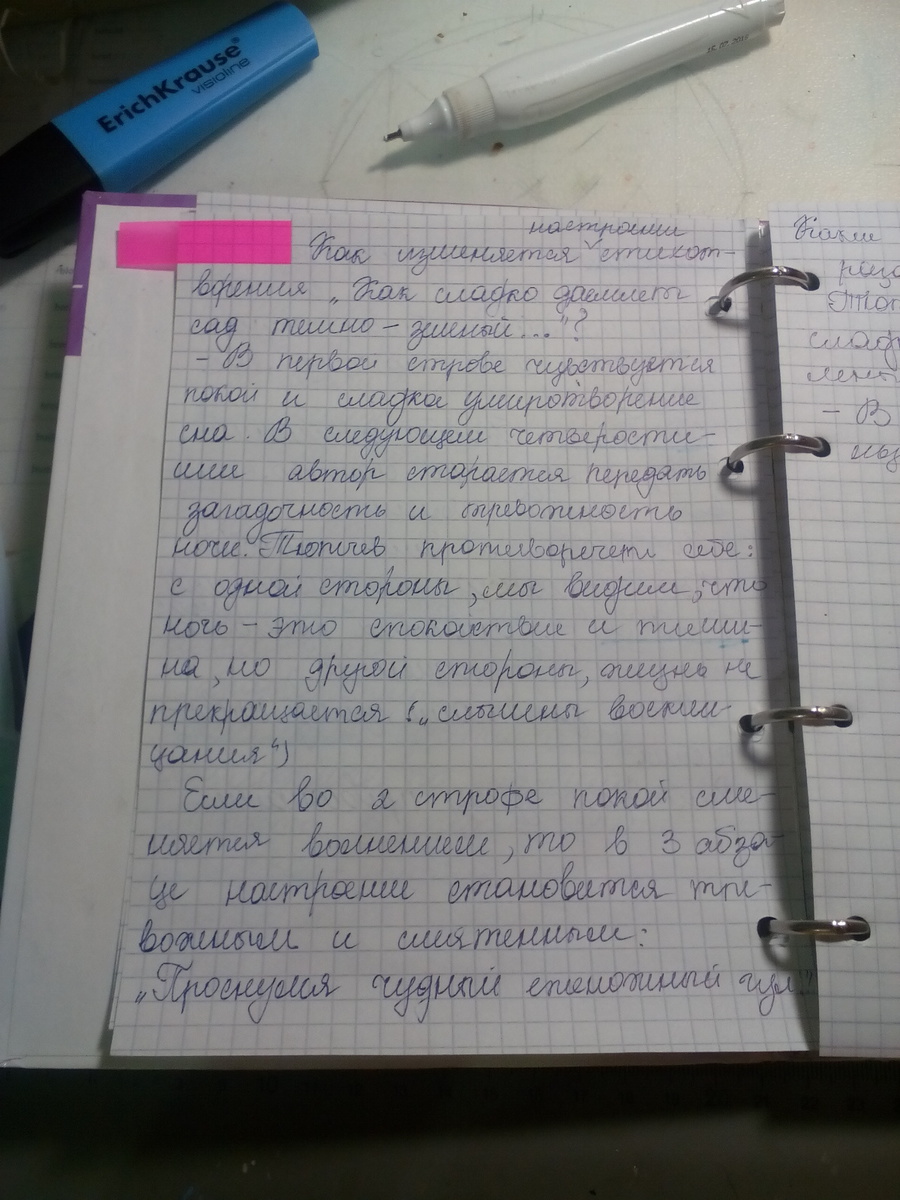 ErichKrause®
visioline
15.07.2019
настроение
Как изменяется стихот-
ворения „Как сладко дремлет
сад темно-зеленый..."?
- В первой строфе чувствуется
покой и сладкое умиротворение
сна. В следующем четверости-
шии автор старается передать
загадочность и тревожность
ночи. Тютчев противоречет себе:
с одной стороны, мы видим, что
ночь - это спокойствие и тиши-
на, но другой стороны, жизнь не
прекращается („слышны воскли-
цания")
Если во 2 строфе покой сме-
няется волнением, то в 3 абза-
це настроение становится тре-
вожным и смятенным:
„Проснулся чудный еженощный гул"
Какие
Этот
слад
- В